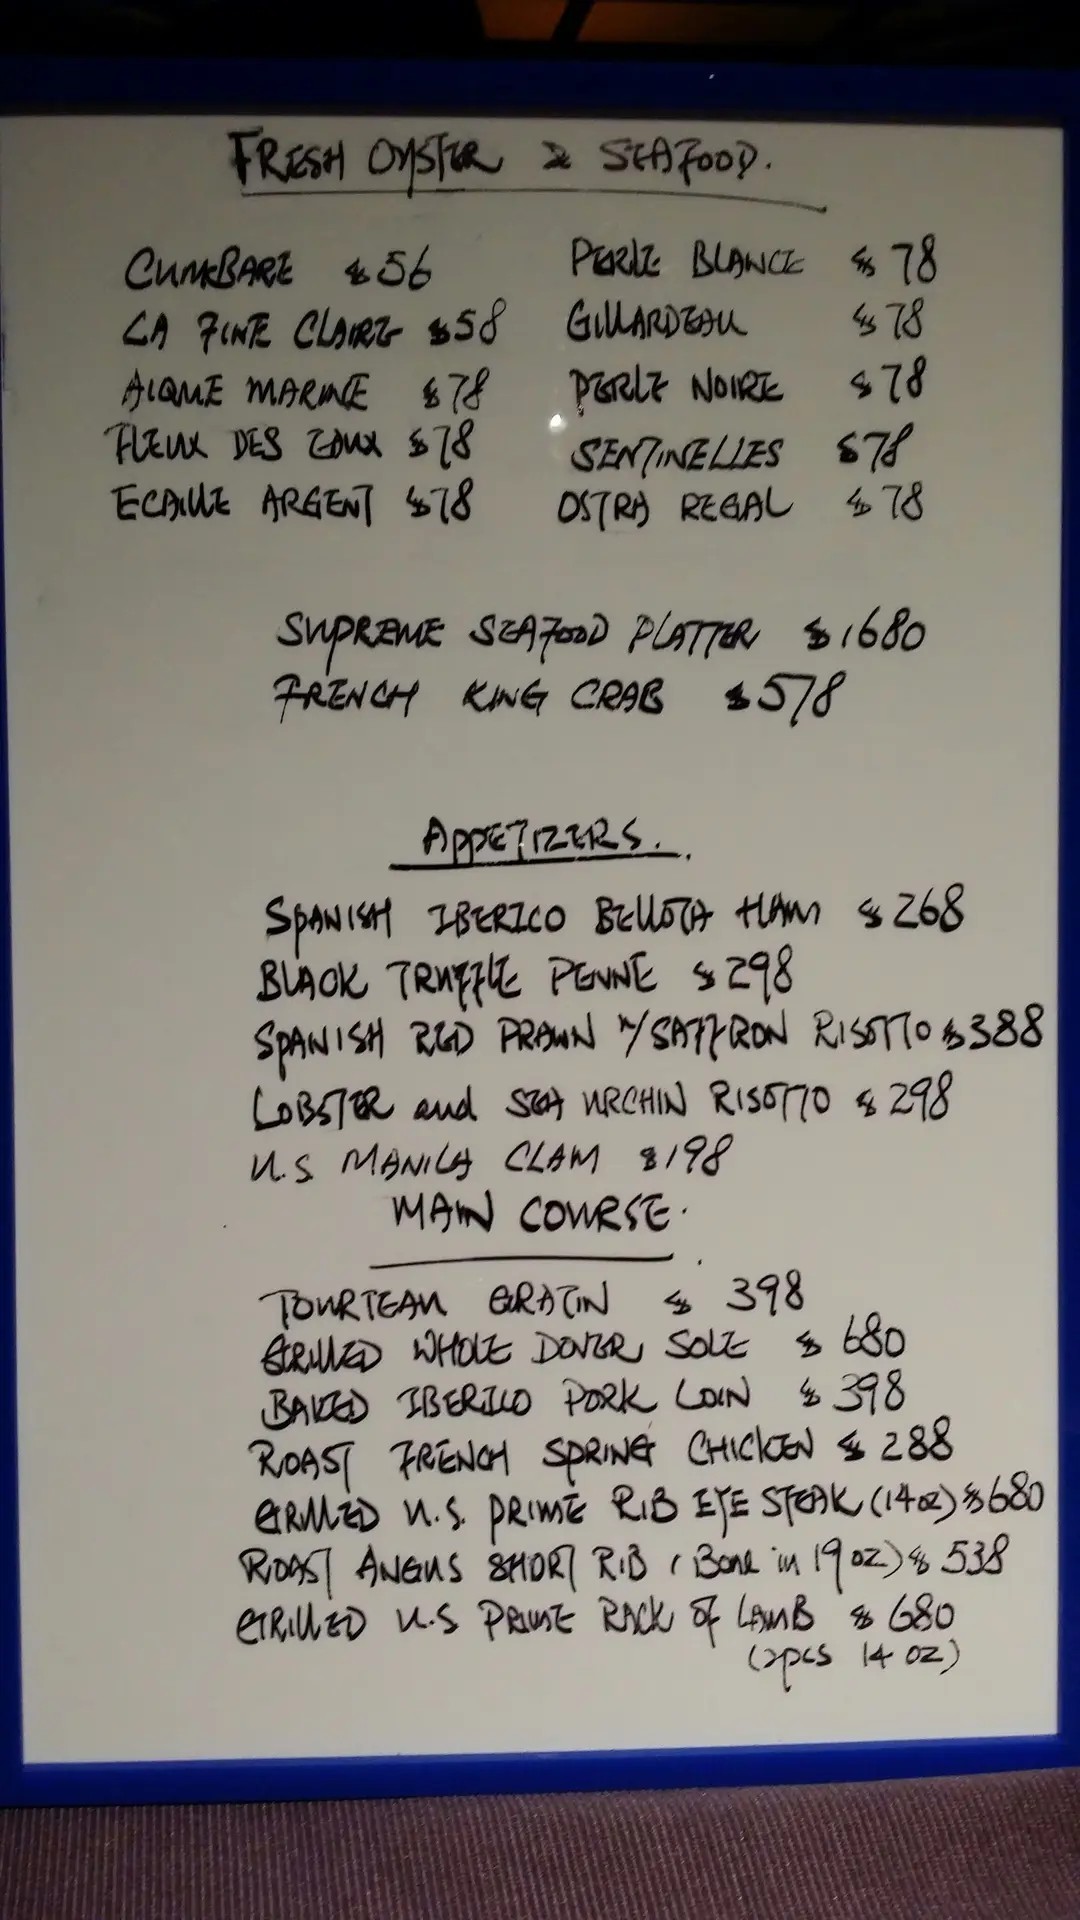 FRESH OYSTER & SEAFOOD.
CUMBARE $56
PERLE BLANCE $78
LA FINE CLAIRE $58
GILLARDEAU $78
AIQUE MARINE $78
PERLE NOIRE $78
FLEUX DES EAUX $78
SENTINELLES $78
ECAILLE ARGENT $78
OSTRA REGAL $78
SUPREME SEAFOOD PLATTER $1680
FRENCH KING CRAB $578
APPETIZERS.
SPANISH IBERICO BELLOTA HAM $268
BLACK TRUFFLE PENNE $298
SPANISH RED PRAWN W/SAFFRON RISOTTO $388
LOBSTER and SEA URCHIN RISOTTO $298
U.S MANILA CLAM $198
MAIN COURSE.
TOURTEAU GRATIN $398
GRILLED WHOLE DOVER SOLE $680
BAKED IBERICO PORK LOIN $398
ROAST FRENCH SPRING CHICKEN $288
GRILLED U.S. PRIME RIB EYE STEAK (14oz) $680
ROAST ANGUS SHORT RIB (Bone in 19 oz) $538
GRILLED U.S PRIME RACK OF LAMB $680
(2pcs 14 OZ)